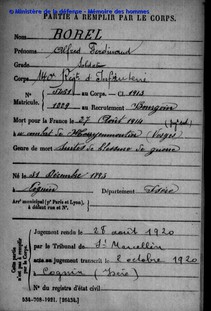 © Ministère de la défense - Mémoire des hommes
PARTIE A REMPLIR PAR LE CORPS.
Nom BOREL
Prénoms Alfred Ferdinand
Grade Soldat
Corps 140e Régt d'Infanterie
N° au Corps. — Cl. 1913
Matricule. 1229 au Recrutement Bourgoin
Mort pour la France le 27 Août 1914
Genre de mort Suite de blessures de guerre
Né le 31 Décembre 1893
à Département Isère
Arr municipal (p' Paris et Lyon),
à défaut rue et N°.
Cette partie
n'est pas à remplir
par le Corps.
Jugement rendu le 28 août 1920
par le Tribunal de St Marcellin
acte ou jugement transcrit le 2 octobre 1920
à Cognin (Isère)
N° du registre d'état civil
534-708-1921. [26434.]